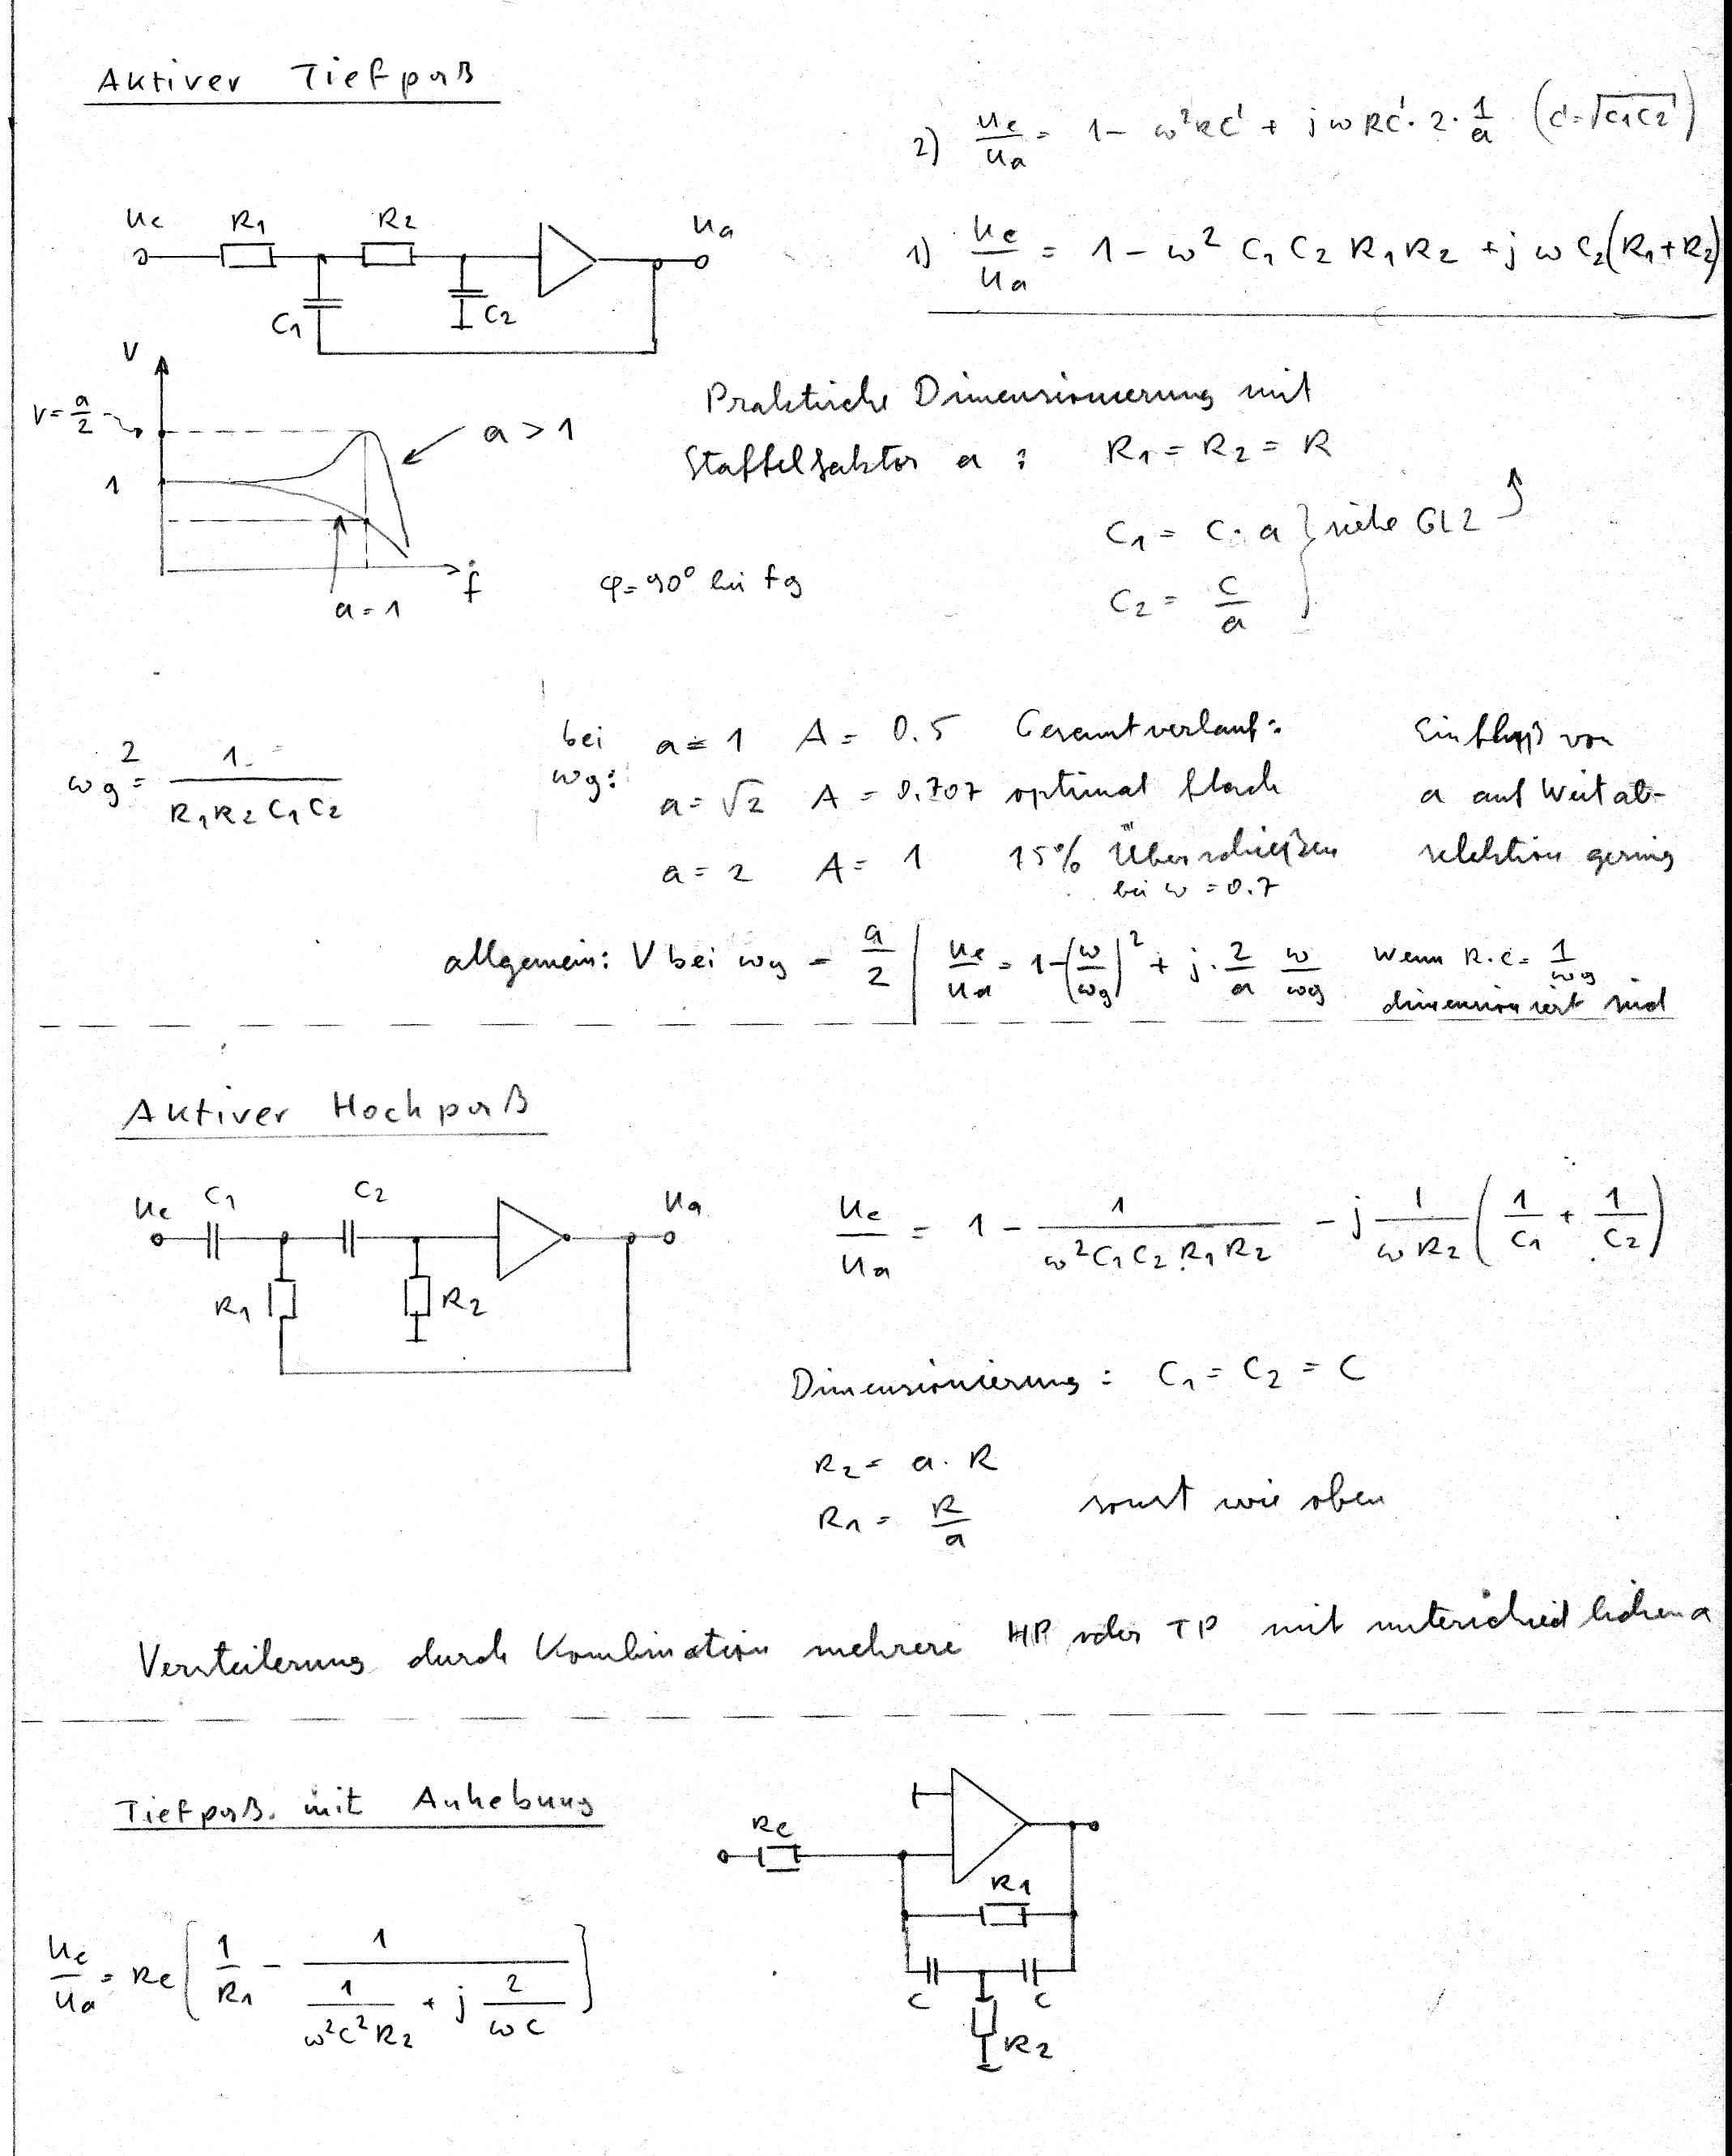 Aktiver Tiefpaß
2) ue/ua = 1 - ω²RC' + jωRC'·2·1/a (C'=√C1C2)
1) ue/ua = 1 - ω² C1 C2 R1 R2 + jω C2(R1+R2)
ue R1 R2 ua
C1 C2
V
V = a/2
a > 1
1
f
a = 1
φ = 90° bei fg
Praktische Dimensionierung mit
Staffelfaktor a : R1 = R2 = R
C1 = C · a } siehe Gl 2
C2 = C/a
ωg² = 1/(R1R2C1C2)
bei ωg: a = 1 A = 0.5 Gesamtverlauf:
a = √2 A = 0.707 optimal flach
a = 2 A = 1 15% Überschießen
bei ω = 0.7
Einfluß von
a auf Weitab-
selektion gering
allgemein: V bei ωg = a/2 | ue/ua = 1-(ω/ωg)² + j·2/a ω/ωg wenn R·C = 1/ωg
dimensioniert sind
Aktiver Hochpaß
ue C1 C2 ua
R1 R2
ue/ua = 1 - 1/(ω²C1C2R1R2) - j 1/(ωR2) (1/C1 + 1/C2)
Dimensionierung : C1 = C2 = C
R2 = a · R
R1 = R/a sonst wie oben
Versteilerung durch Kombination mehrere HP oder TP mit unterschiedlichen a
Tiefpaß mit Anhebung
Re
R1
C C
R2
ue/ua = Re [ 1/R1 - 1/(1/(ω²C²R2) + j 2/(ωC)) ]